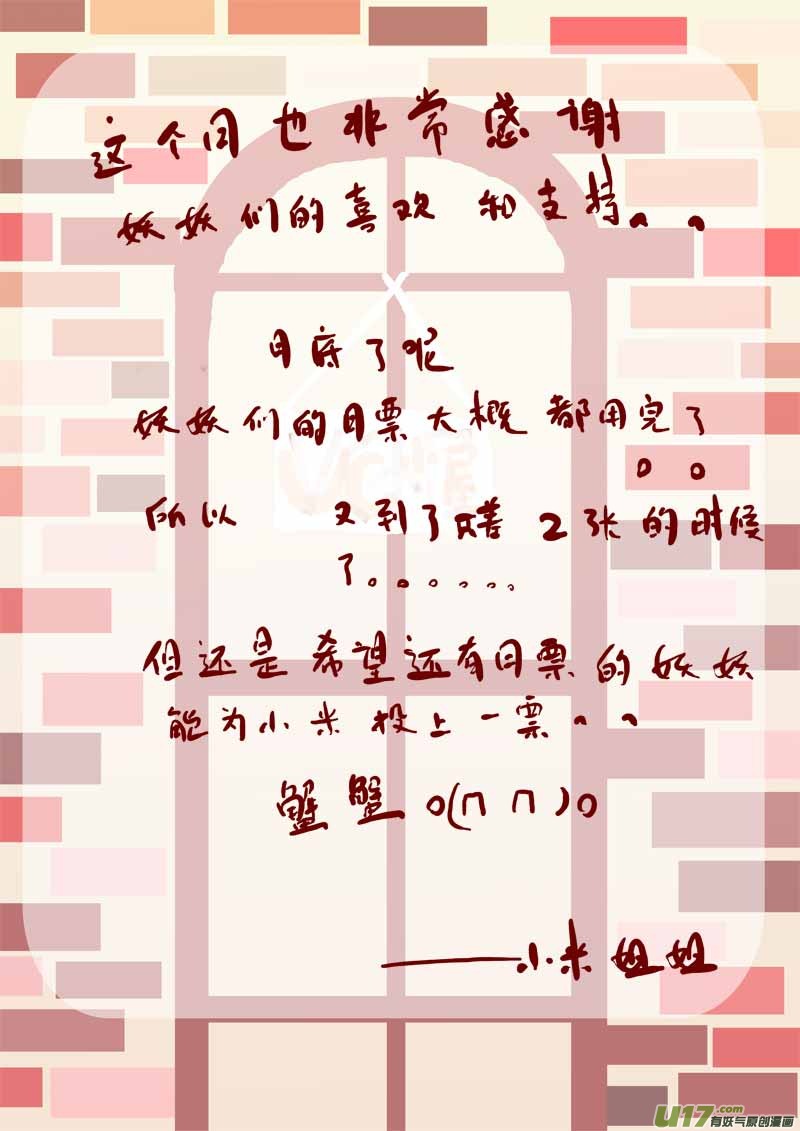 这个月也非常感谢
妖妖们的喜欢 和支持。。
月底了呢
妖妖们的月票大概 都用完了
。。
所以 又到了 2张的时候
了。。。。。。
但还是希望还有月票的妖妖
能为小米投上一票。。
蟹蟹o(∩ ∩)o
——小米姐姐
U17.com
有妖气原创漫画